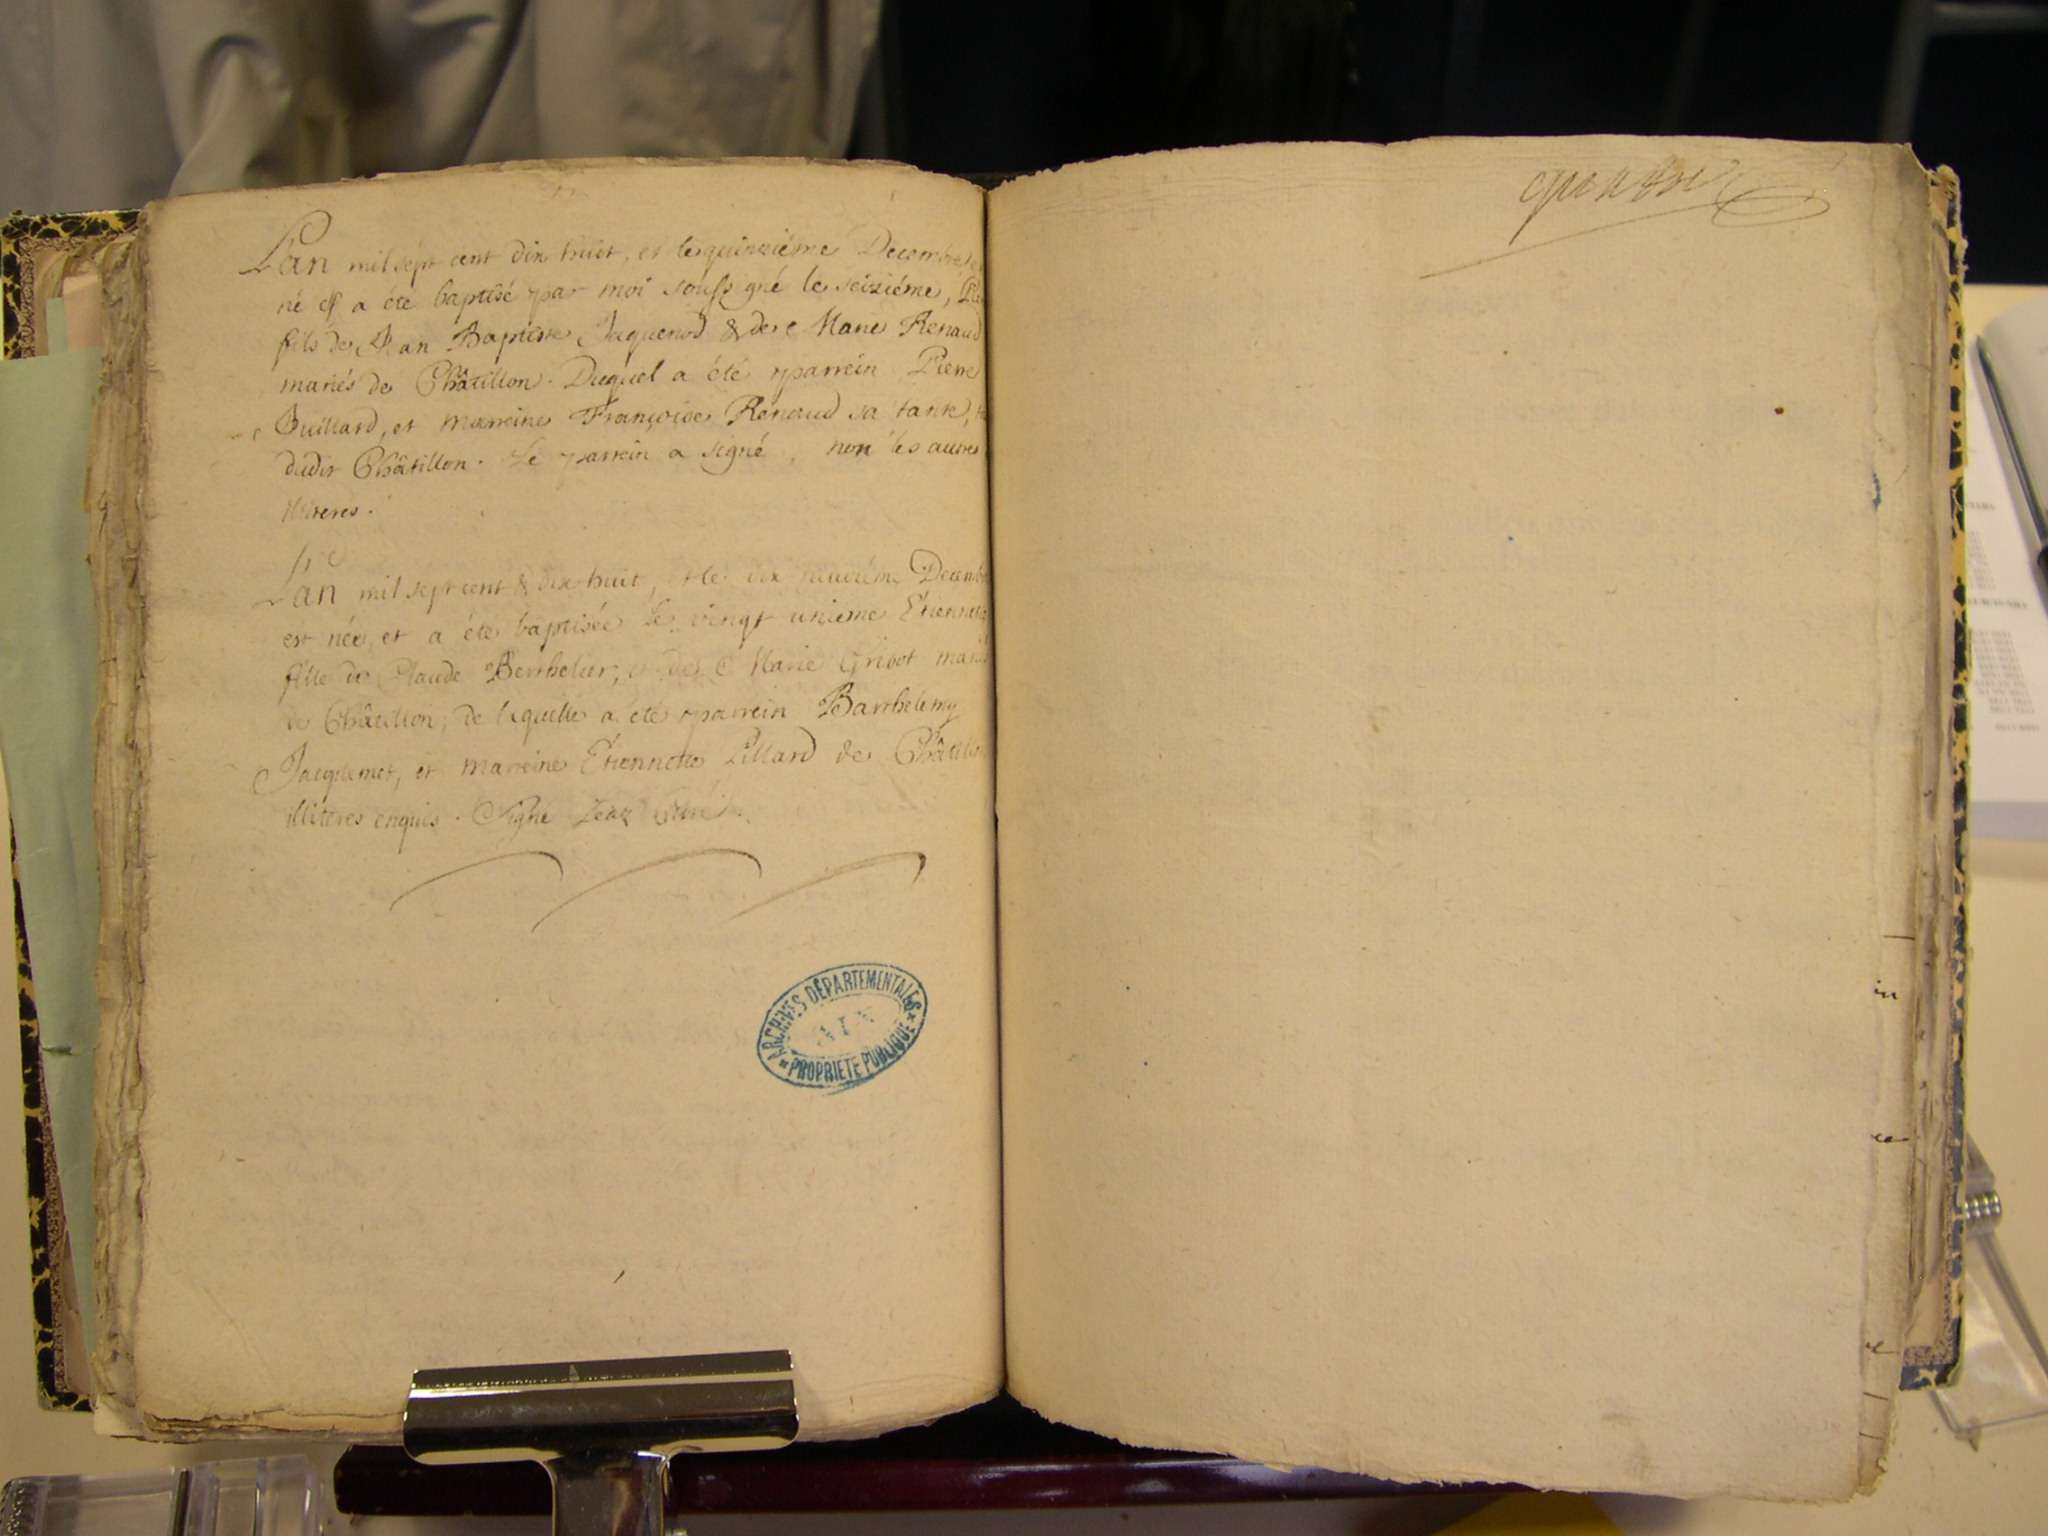 L'an mil sept cent dix huit, et le quinziéme Decembre
né & a été baptisé par moi soussigné le seiziéme,
fils de Jean Baptiste Jaquenod & de Marie Renaud
mariés de Châtillon. Duquel a été parrein Pierre
Juillard, et marreine Françoise Renaud sa tante,
dudit Châtillon. Le parrein a signé, non les autres
illiteres.
L'an mil sept cent & dix huit, et le dix neuviéme Decemb
est née, et a été baptisée le vingt unieme Etiennette
fille de Claude Berthelier, et de Marie Gribot
de Châtillon, de laquelle a été parrein Barthelemy
Jacquemet, et marreine Etiennette Lillard de Châtillon
illiteres enquis. Signé
ARCHIVES DÉPARTEMENTALES
AIN
PROPRIÉTÉ PUBLIQUE
quatre